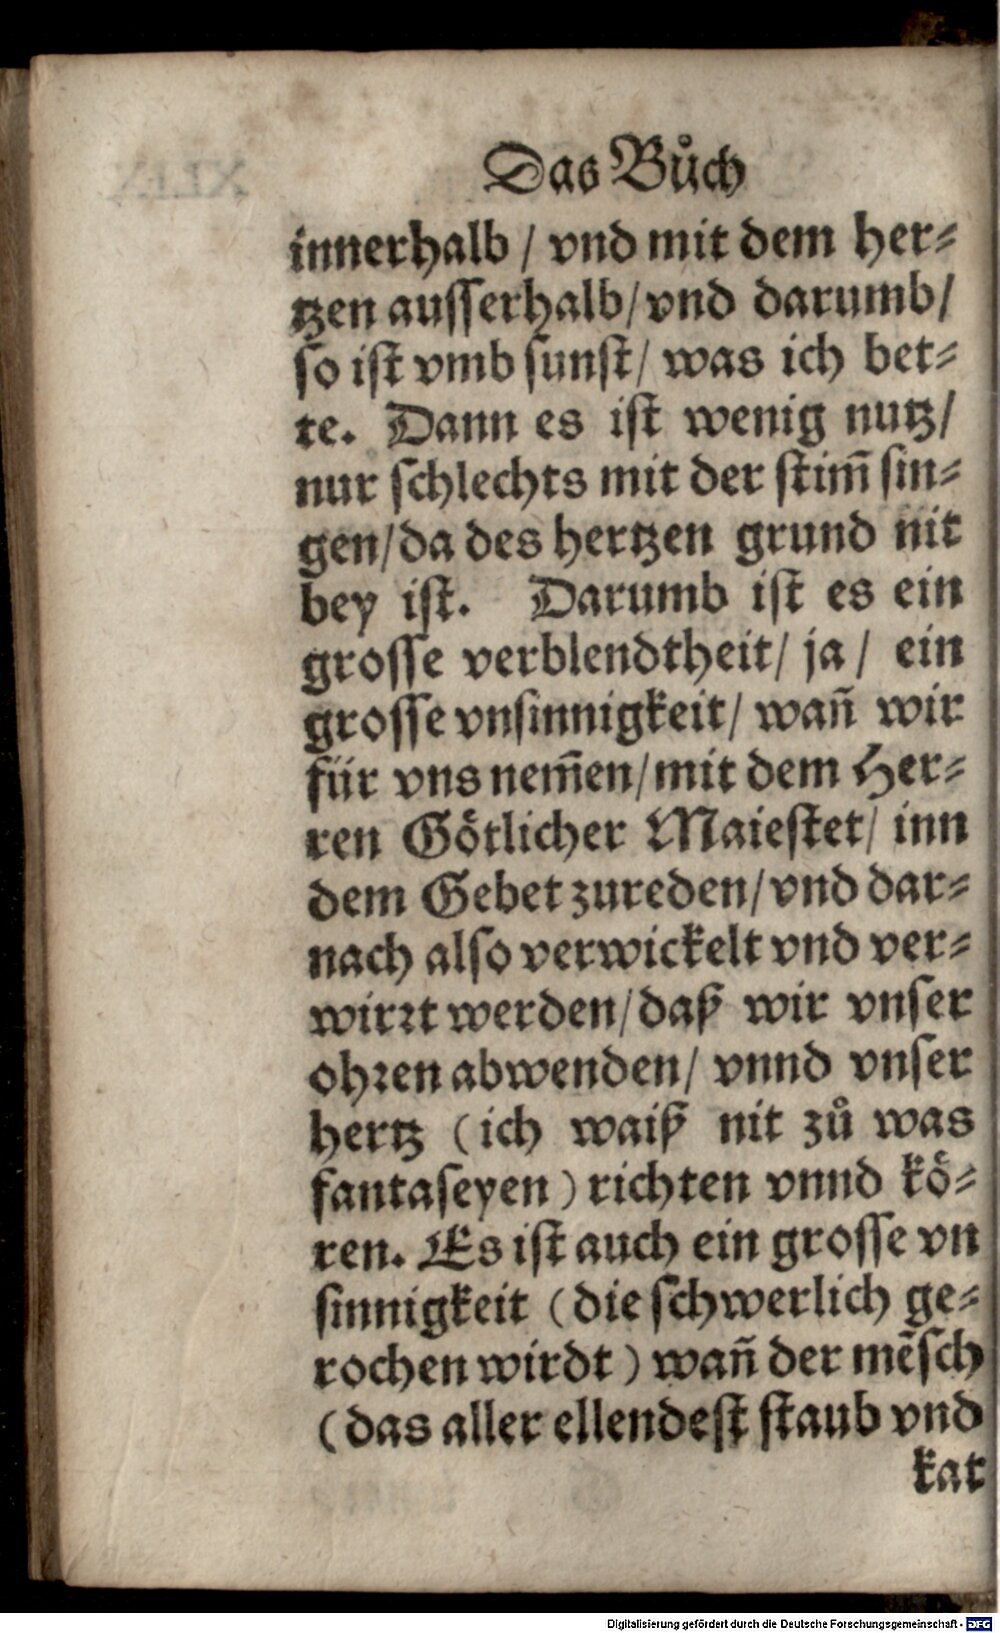 Das Bůch
innerhalb / vnd mit dem her⸗
tzen ausserhalb/ vnd darumb/
so ist vmb sunst/ was ich bet⸗
te. Dann es ist wenig nutz/
nur schlechts mit der stim̃ sin⸗
gen/ da des hertzen grund nit
bey ist. Darumb ist es ein
grosse verblendtheit/ ja / ein
grosse vnsinnigkeit/ wañ wir
für vns nem̃en/ mit dem Her⸗
ren Götlicher Maiestet/ inn
dem Gebet zureden/ vnd dar⸗
nach also verwickelt vnd ver⸗
wirꝛt werden/ daß wir vnser
ohꝛen abwenden/ vnnd vnser
hertz (ich waiß nit zů was
fantaseyen) richten vnnd kö⸗
ren. Es ist auch ein grosse vn
sinnigkeit (die schwerlich ge⸗
rochen wirdt) wañ der mẽsch
(das aller ellendest staub vnd
kat
Digitalisierung gefördert durch die Deutsche Forschungsgemeinschaft - DFG